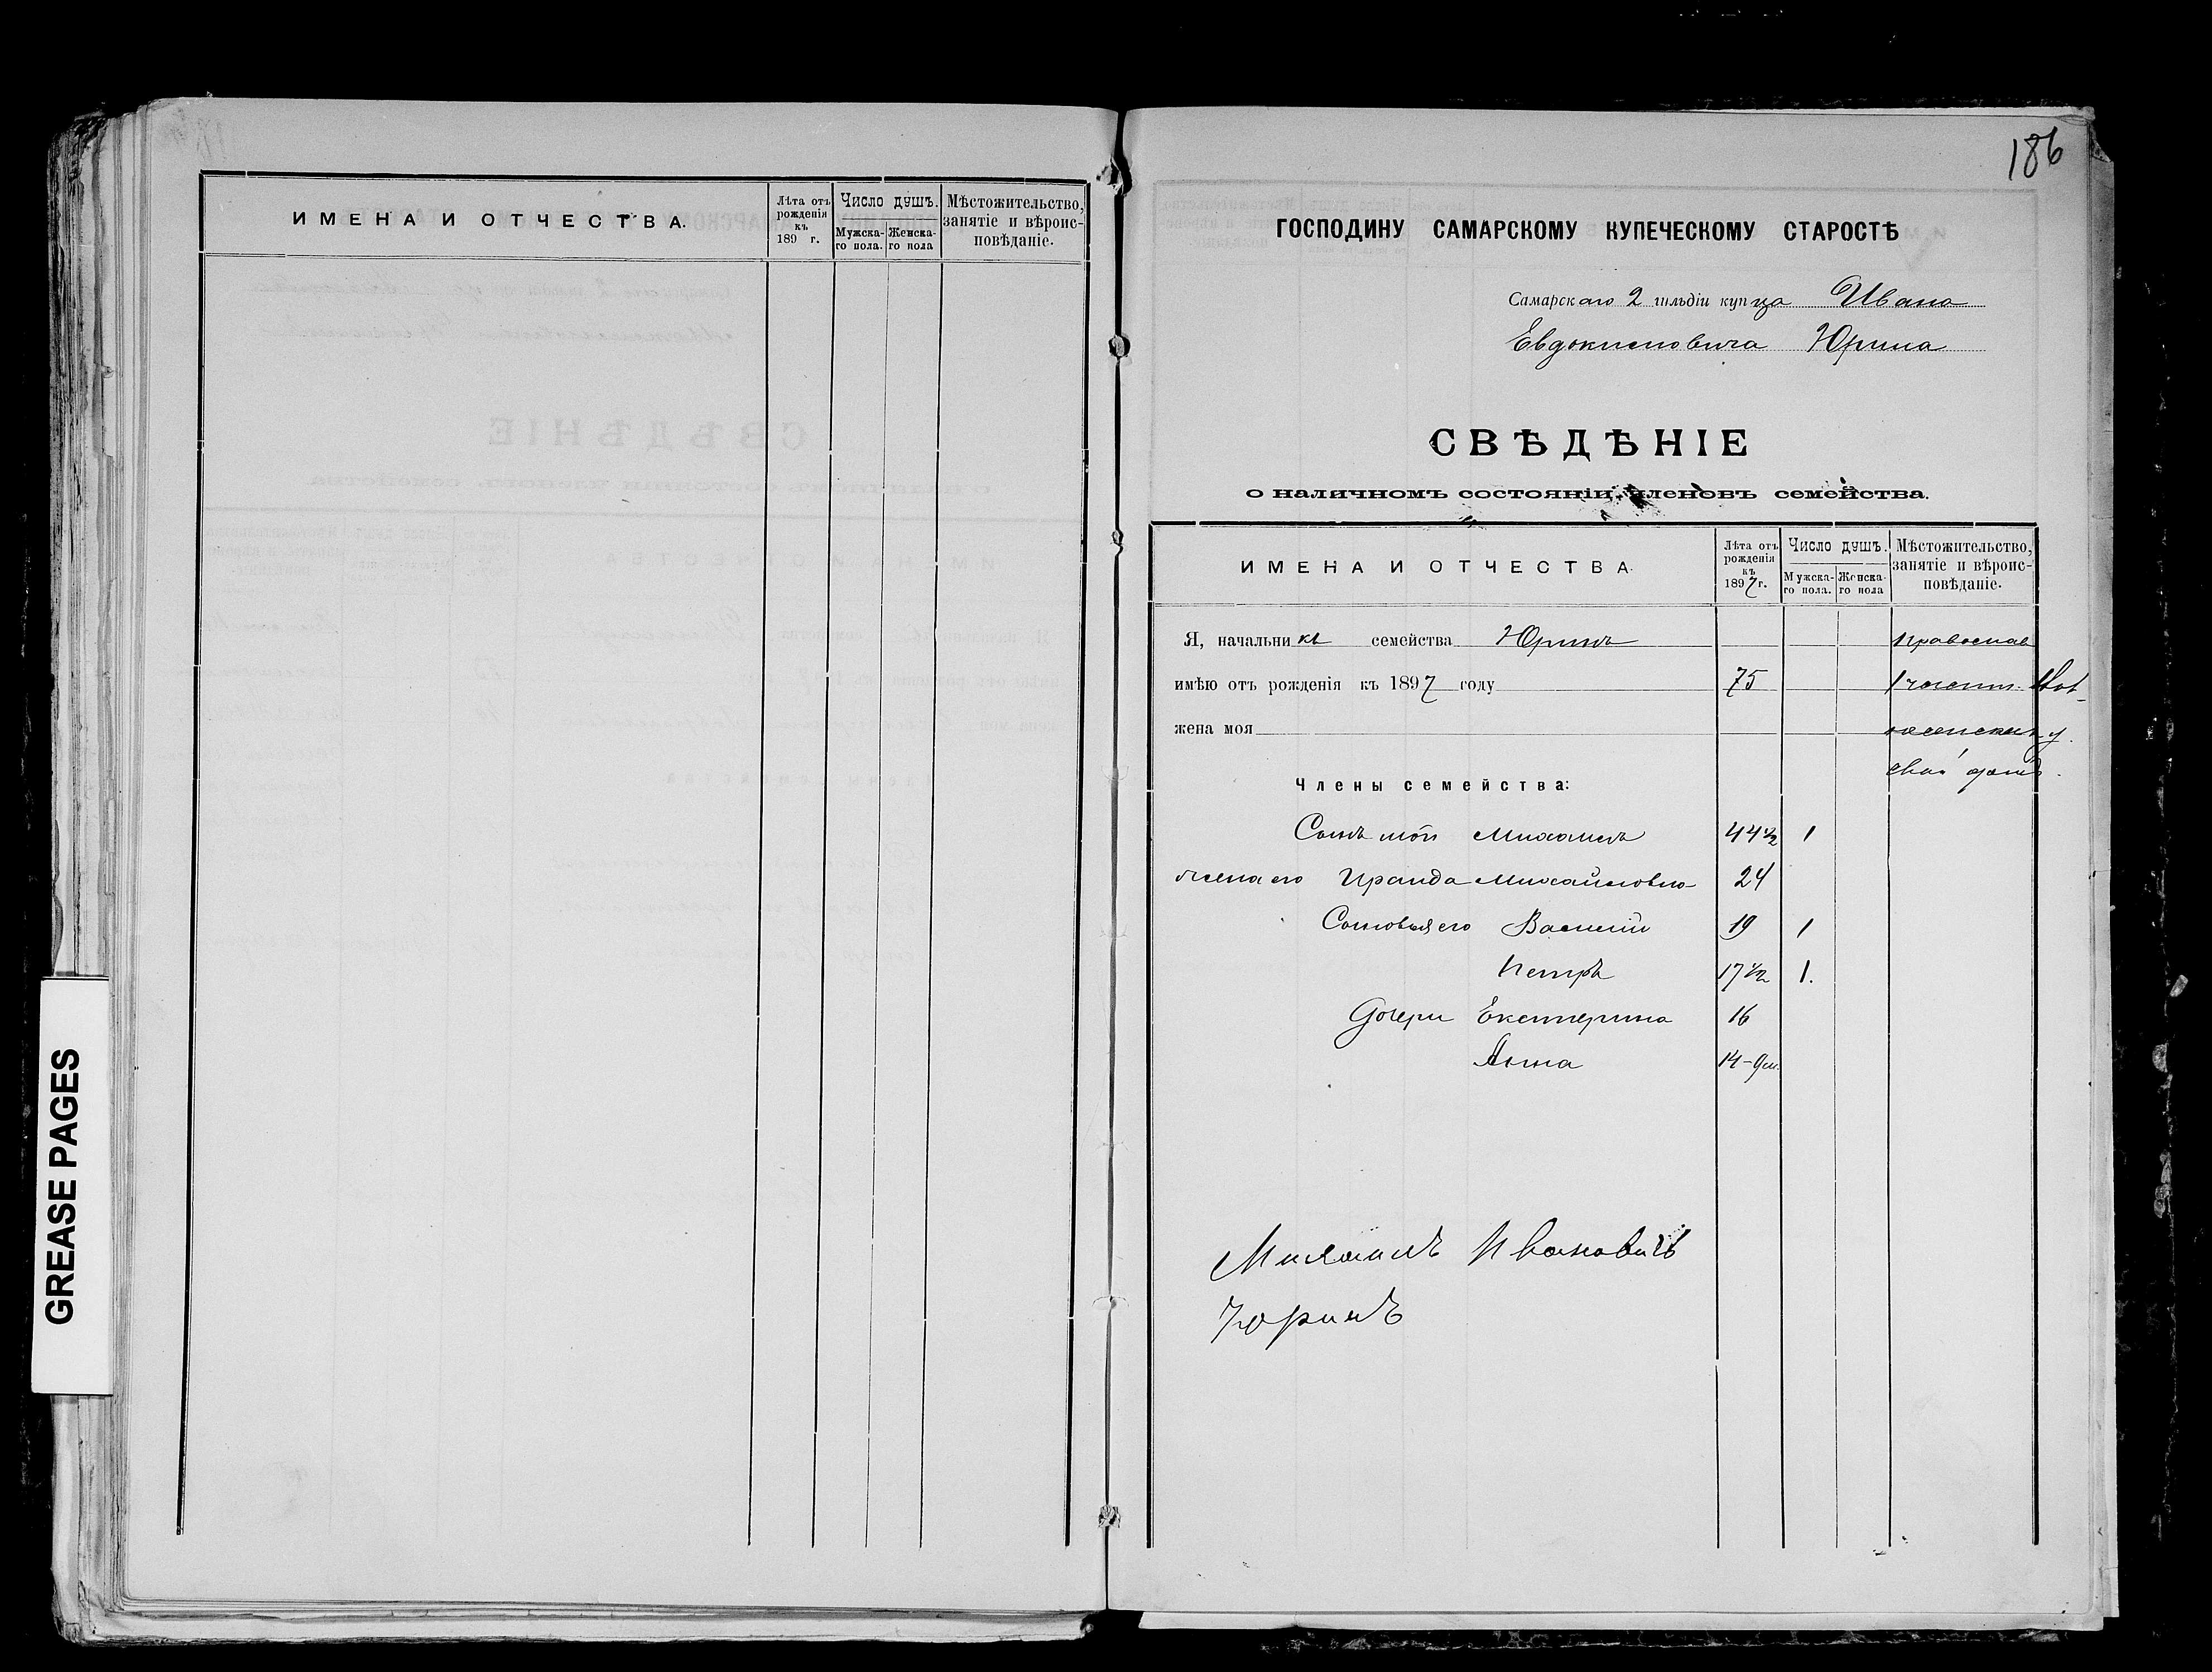 ИМЕНА И ОТЧЕСТВА.
Лѣта отъ рожденія къ 189 г.
Число душъ.
Мужска-го пола.
Женска-го пола
Мѣстожительство, занятіе и вѣроис-повѣданіе.
GREASE PAGES
186
ГОСПОДИНУ САМАРСКОМУ КУПЕЧЕСКОМУ СТАРОСТѢ
Самарскаго 2 гильдіи купца Ивана
Евдокимовича Юрина
СВѢДѢНІЕ
о наличномъ состояніи членовъ семейства.
ИМЕНА И ОТЧЕСТВА.
Лѣта отъ рожденія къ 1897 г.
Число душъ.
Мужска-го пола.
Женска-го пола
Мѣстожительство, занятіе и вѣроис-повѣданіе.
Я, начальникъ семейства Юринъ православ
имѣю отъ рожденія къ 1897 году 75 1 части
жена моя у.
свой домъ.
Члены семейства:
Сынъ мой Михаилъ 44 1/2 1
жена его Ираида Михайловна 24
Сыновья его Василій 19 1
Петръ 17 1/2 1.
Дочери Екатерина 16
Анна 14-9 м.
Михаилъ Ивановичъ
Юринъ